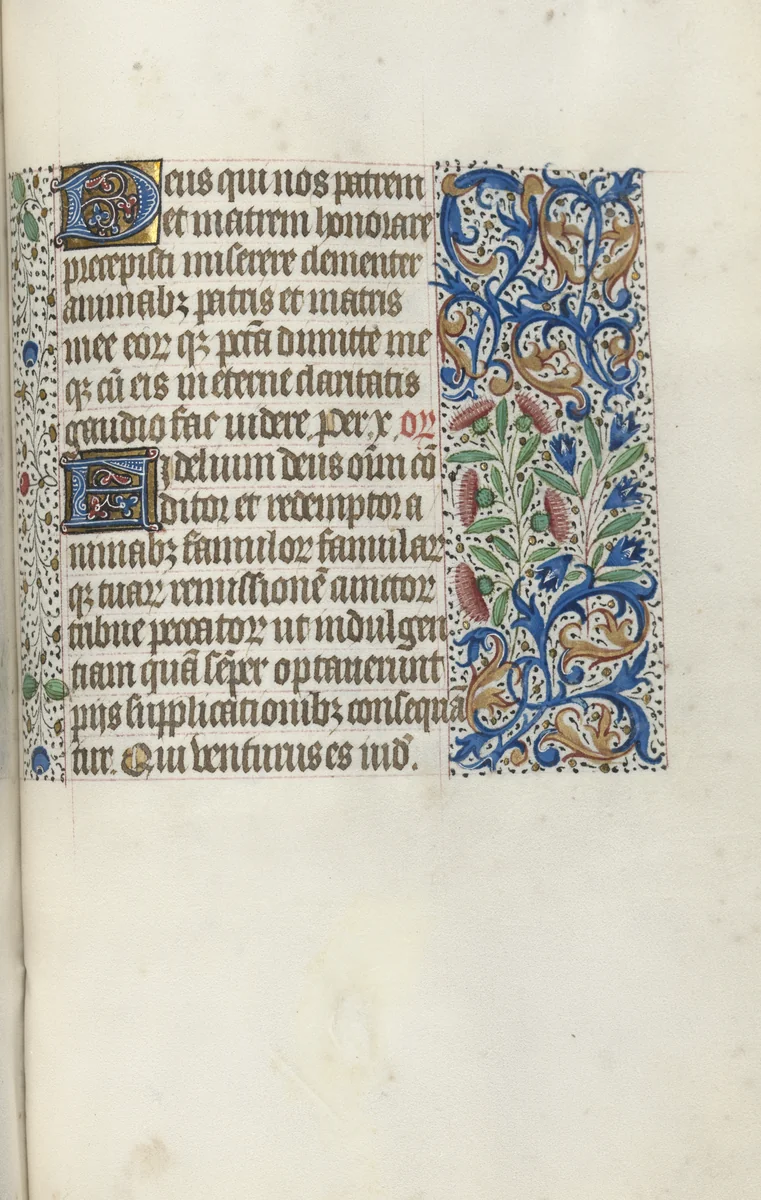 Deus qui nos patrem
et matrem honorare
precepisti miserere clementer
animabꝫ patris et matris
mee eoꝝ qꝫ pctā dimitte me
qꝫ cū eis in eterne claritatis
gaudio fac uidere. Per. x. oꝝ
Fidelium deus oīm cō
ditor et redemptor a
nimabꝫ famuloꝝ famulaꝝ
qꝫ tuaꝝ remissionē cunctoꝝ
tribue peccatoꝝ ut indulgen
tiam quā sēper optauerunt
pijs supplicationibꝫ consequā
tur. Qui venturus es iud̄.